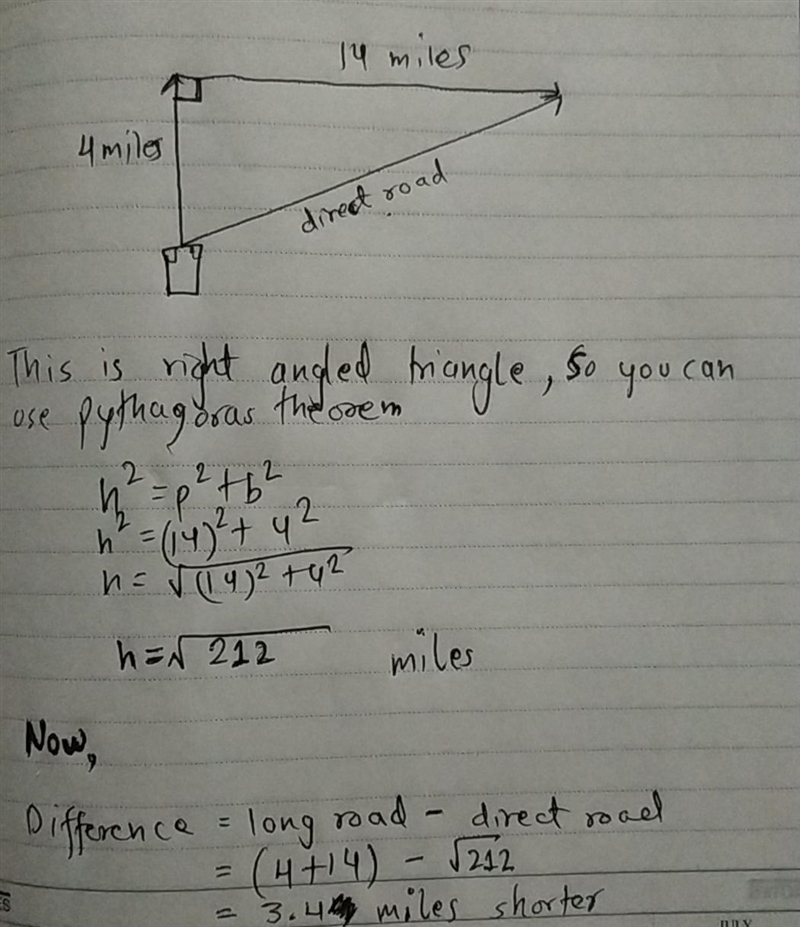 14 miles
4 miles
direct road
This is right angled triangle, so you can
use pythagoras theorem
h² = p² + b²
h² = (14)² + 4²
h = √(14)² + 4²
h = √212 miles
Now,
Difference = long road - direct road
= (4+14) - √212
= 3.4 miles shorter